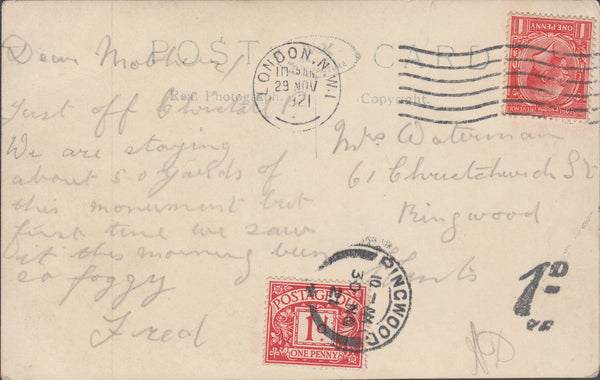 POST CARD
Real Photograph
Copyright.
LONDON. N.W.1
10
29 NOV
1921
ONE PENNY
Dear Mother
Just off
We are staying
about 50 yards of
this monument but
first time we saw
it this morning been
so foggy
Fred
Mrs Waterman
61 Christchurch St
Ringwood
Hants
RINGWOOD
30 NO
21
POSTAGE DUE
1D
ONE PENNY
1D